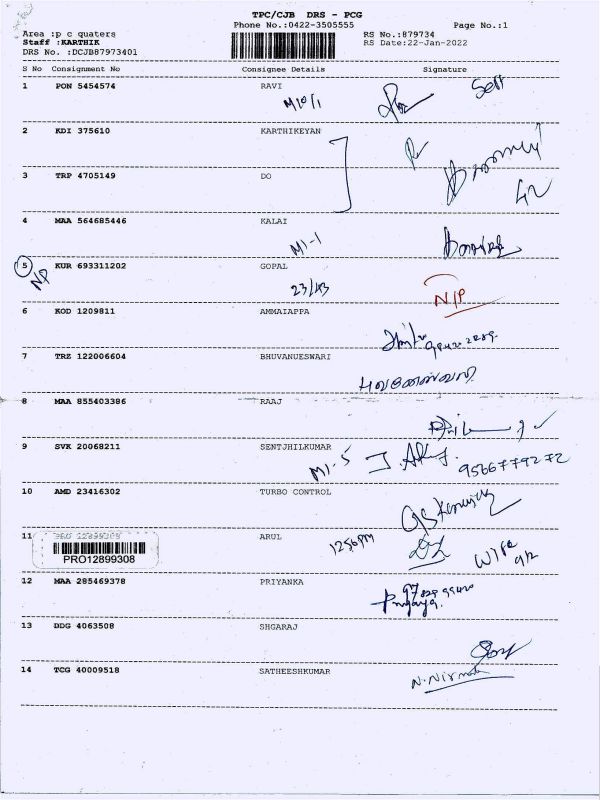 TPC/CJB DRS - PCG
Phone No.:0422-3505555 Page No.:1
Area :p c quaters RS No.:879734
Staff :KARTHIK RS Date:22-Jan-2022
DRS No. :DCJB87973401
S No Consignment No Consignee Details Signature
1 PON 5454574 RAVI
Self
2 KDI 375610 KARTHIKEYAN
3 TRP 4705149 DO
4 MAA 564685446 KALAI
M1-1
5 KUR 693311202 GOPAL
NP 23/43 N/P
6 KOD 1209811 AMMAIAPPA
7 TRZ 122006604 BHUVANUESWARI
புவனேஸ்வரி
8 MAA 855403386 RAAJ
9 SVK 20068211 SENTJHILKUMAR
M1-5 9566779272
10 AMD 23416302 TURBO CONTROL
11 PRO 12899308 ARUL
1256PM Wife
PRO12899308
12 MAA 285469378 PRIYANKA
13 DDG 4063508 SHGARAJ
14 TCG 40009518 SATHEESHKUMAR
N.Nirmala